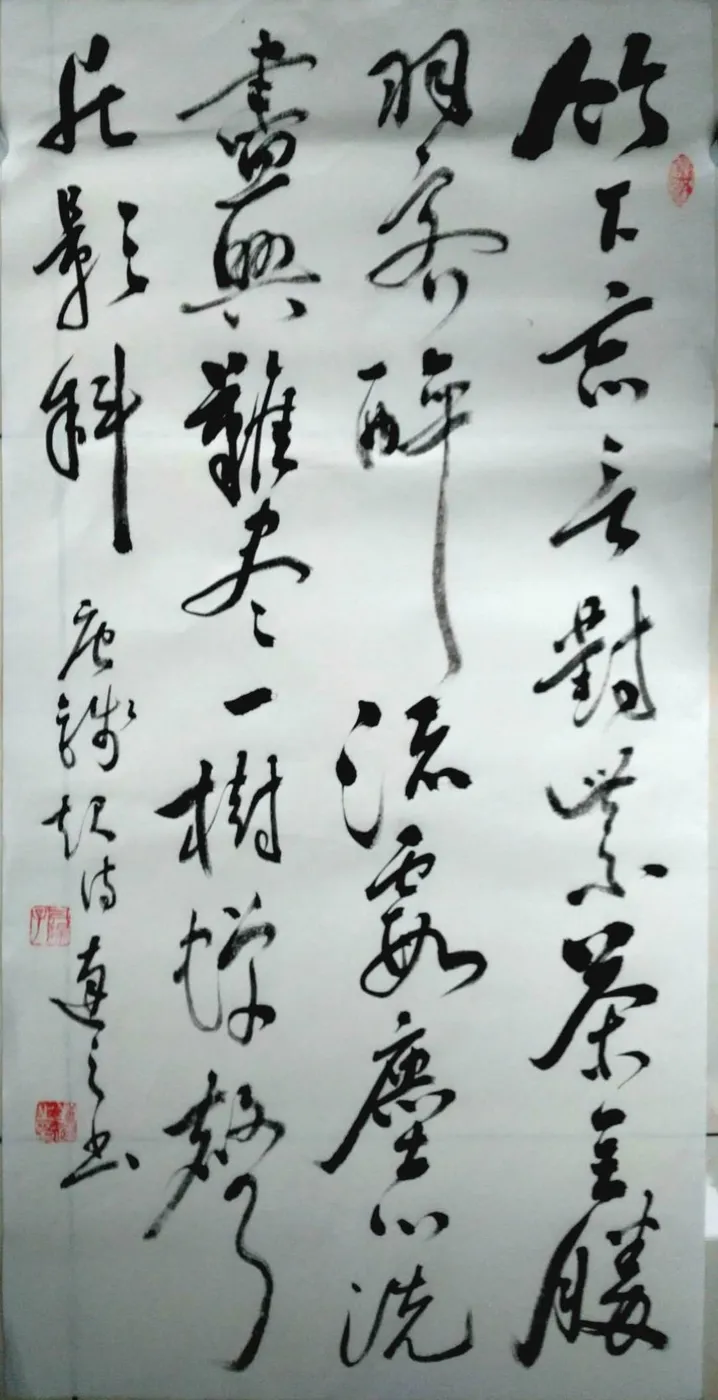 竹下忘言對紫茶全勝
羽客醉流霞塵心洗
盡興難尽一樹蟬聲
片影斜 唐錢起诗 之书